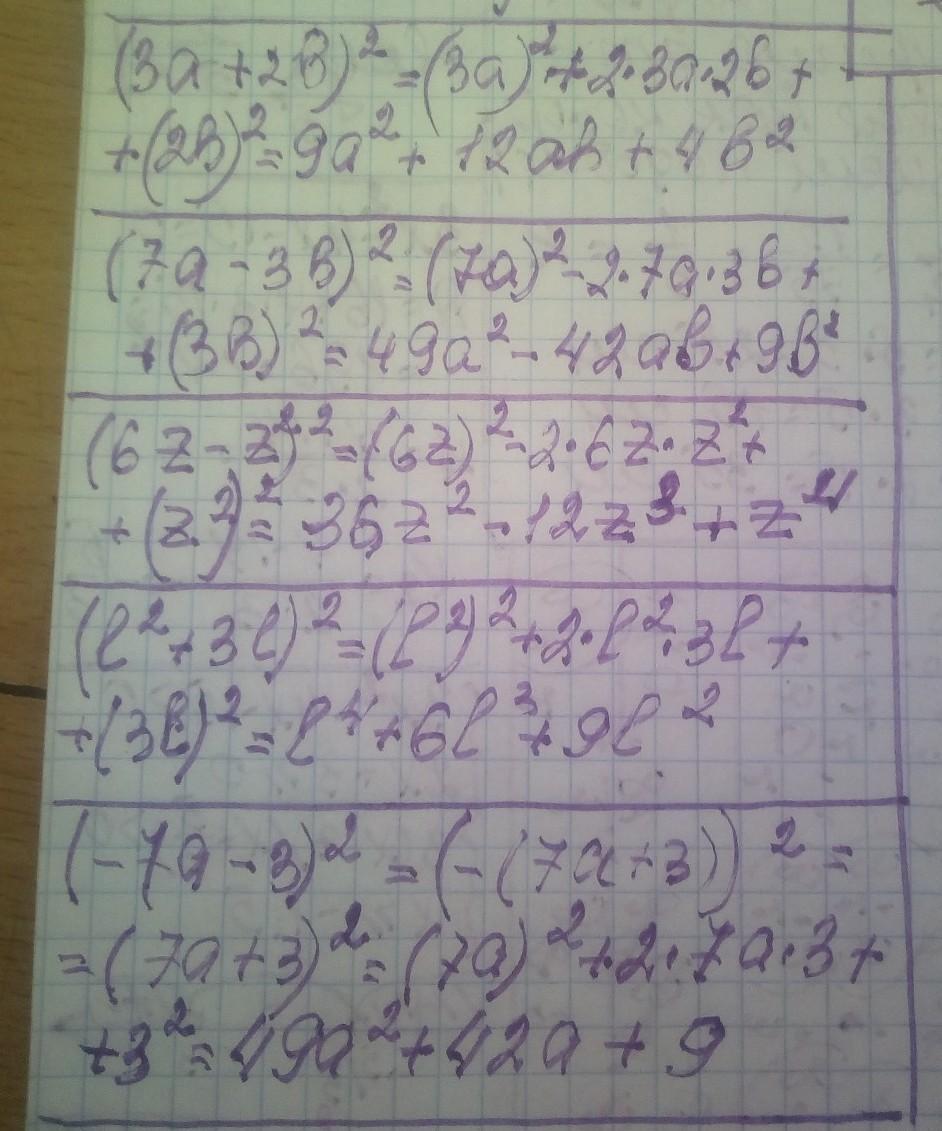 (3a+2b)²=(3a)²+2·3a·2b+
+(2b)²=9a²+12ab+4b²
(7a-3b)²=(7a)²-2·7a·3b+
+(3b)²=49a²-42ab+9b²
(6z-z²)²=(6z)²-2·6z·z²+
+(z²)²=36z²-12z³+z⁴
(l²+3l)²=(l²)²+2·l²·3l+
+(3l)²=l⁴+6l³+9l²
(-7a-3)²=(-(7a+3))²=
=(7a+3)²=(7a)²+2·7a·3+
+3²=49a²+42a+9